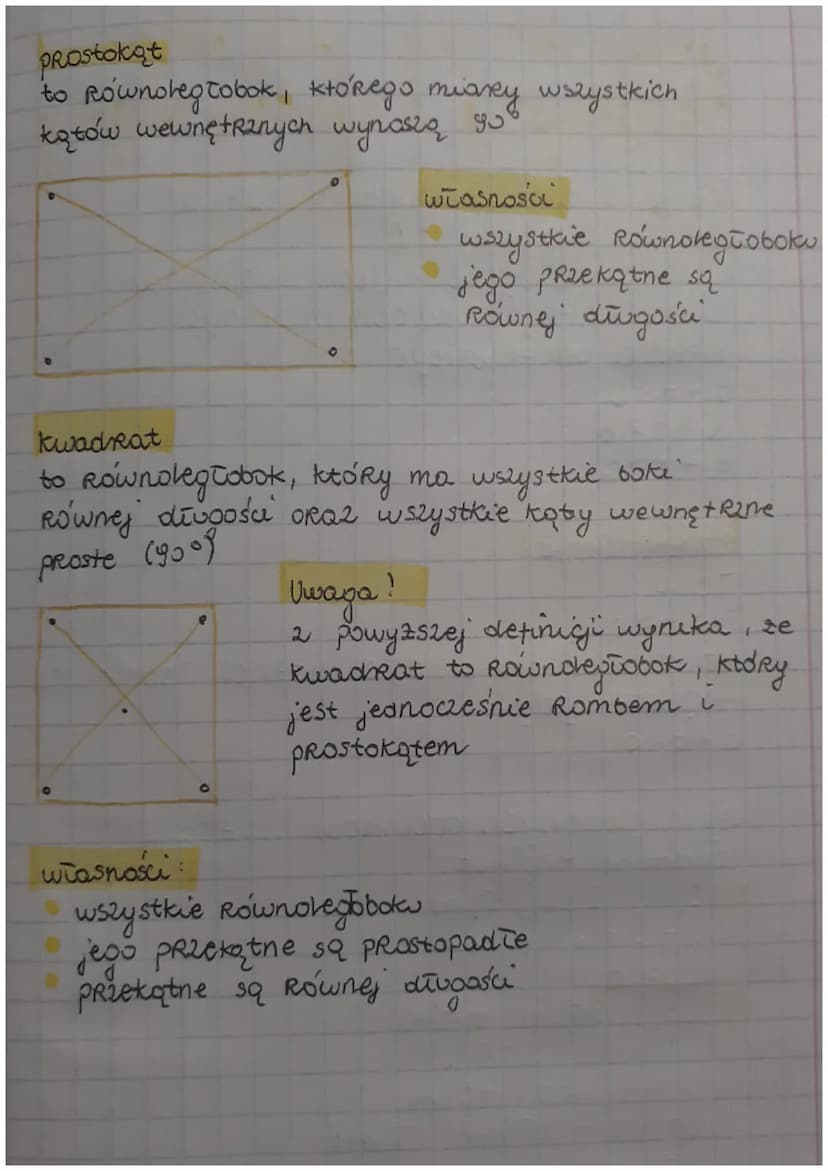 prostokąt
to równoległobok, którego miary wszystkich
kątów wewnętrznych wynoszą 90°
własności
• wszystkie równoległoboku
• jego przekątne są
równej długości
kwadrat
to równoległobok, który ma wszystkie boki
równej długości oraz wszystkie kąty wewnętrzne
proste (90°)
Uwaga!
z powyższej definicji wynika, że
kwadrat to równoległobok, który
jest jednocześnie rombem i
prostokątem
własności:
• wszystkie równoległoboku
• jego przekątne są prostopadłe
• przekątne są równej długości